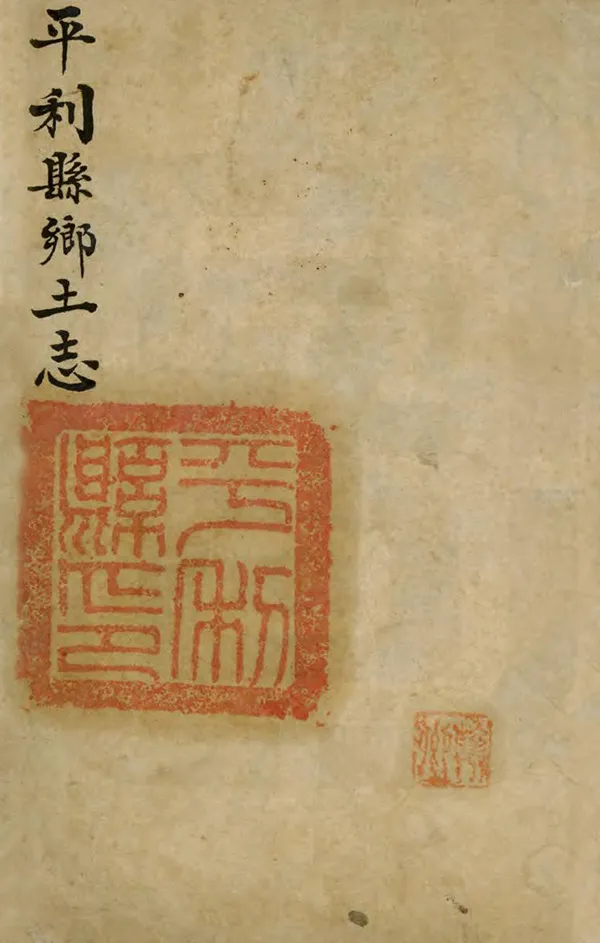 平利縣鄉土志
平利
縣印